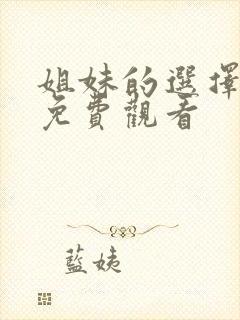 姐妹的選擇
免費觀看
藍姨